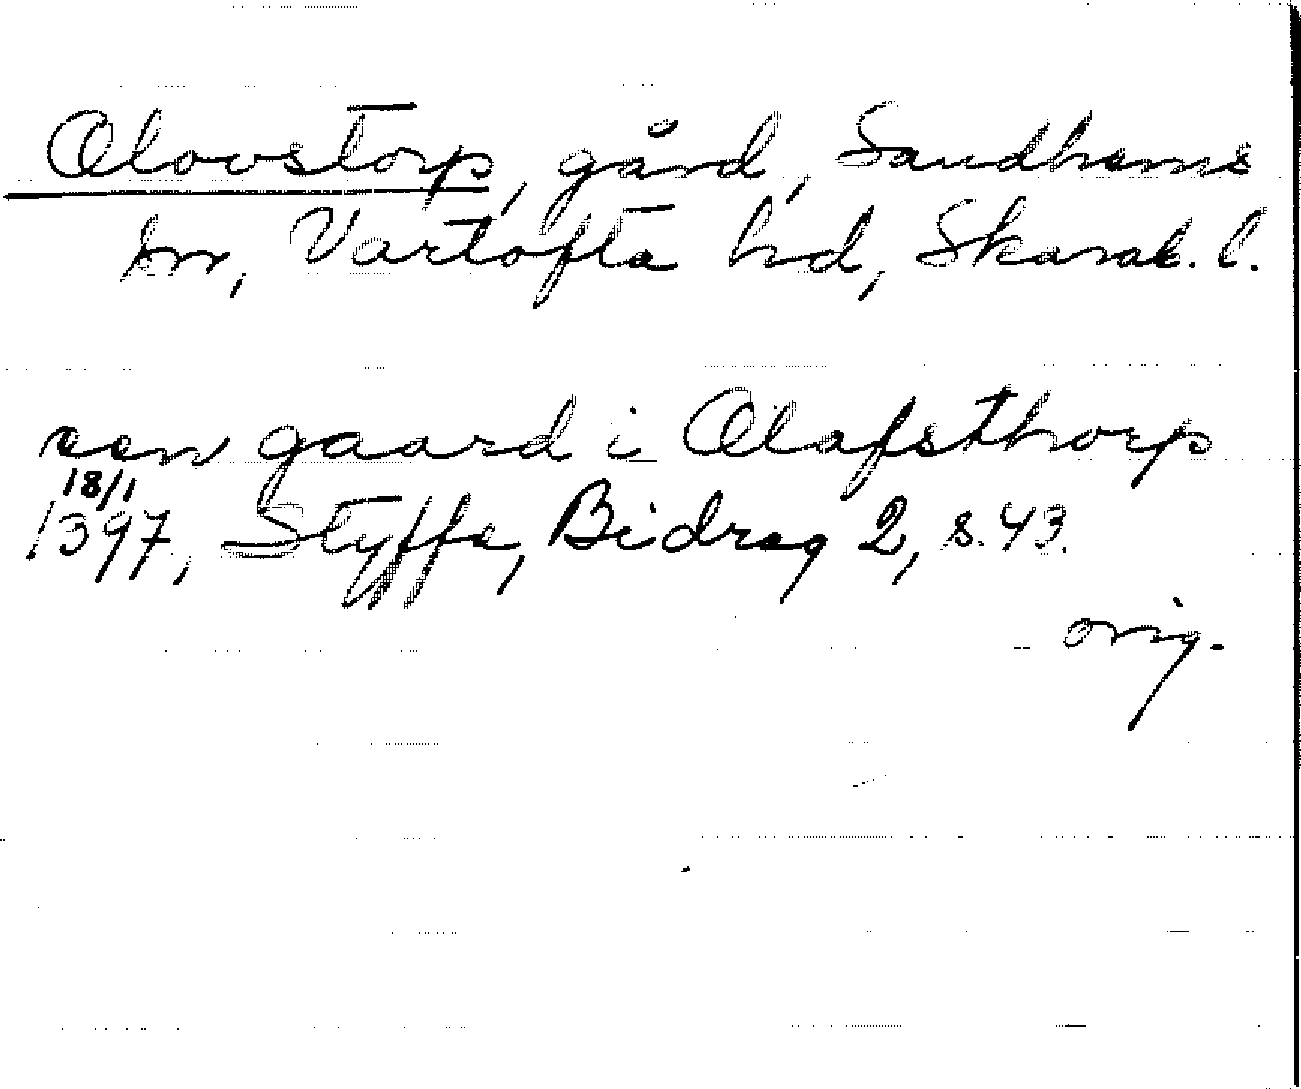 Olovstorp, gård, Sandhems
sn, Vartofta hd, Skarab. l.
een gaard i Olafsthorp
18/1
1397, Styffe, Bidrag 2, s. 43.
orig.